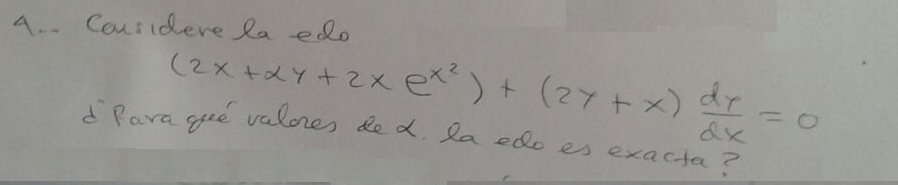 4.. Considere la edo
(2x + αy + 2x e^{x^2}) + (2y + x) dy/dx = 0
¿Para qué valores de α. la edo es exacta?